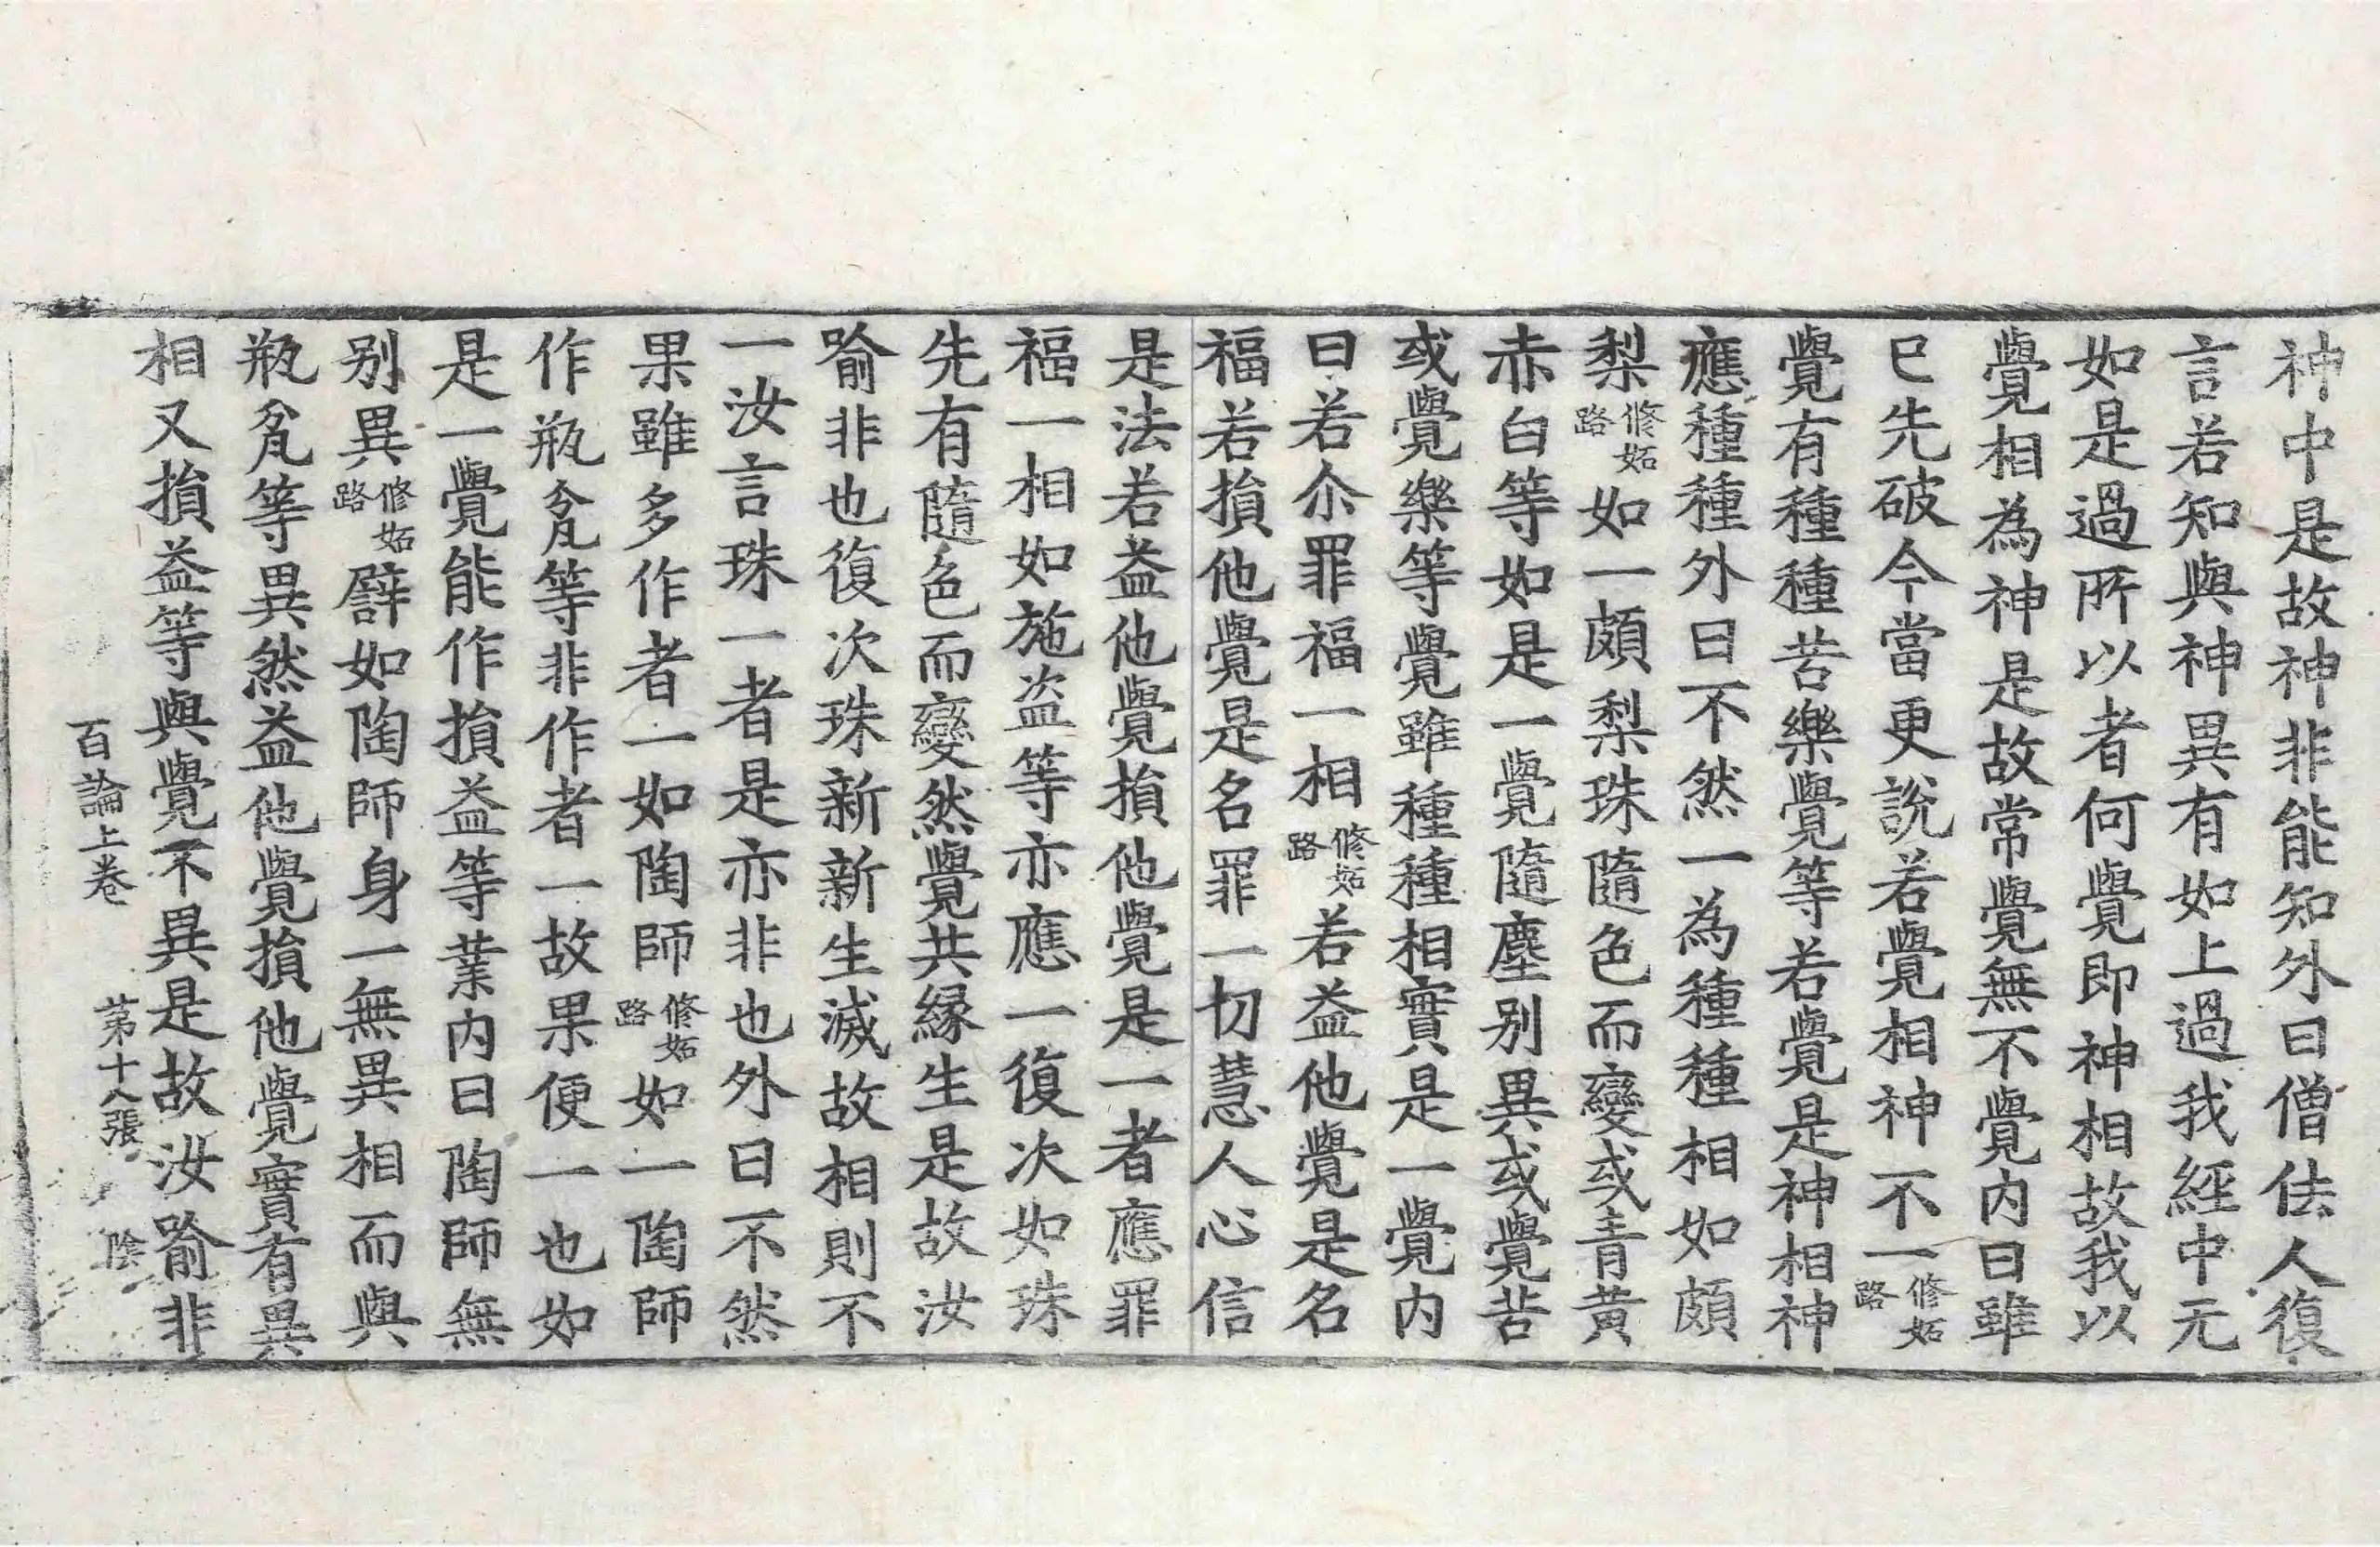 神中是故神非能知外曰僧佉人復
言若知與神異有如上過我經中无
如是過所以者何覺即神相故我以
覺相為神是故常覺無不覺内曰雖
已先破今當更說若覺相神不一修妬路
覺有種種苦樂覺等若覺是神相神
應種種外曰不然一為種種相如頗
梨修妬路如一頗梨珠隨色而變或青黃
赤白等如是一覺隨塵别異或覺苦
或覺樂等覺雖種種相實是一覺内
曰若尒罪福一相修妬路若益他覺是名
福若損他覺是名罪一切慧人心信
是法若益他覺損他覺是一者應罪
福一相如施盜等亦應一復次如珠
先有隨色而變然覺共緣生是故汝
喻非也復次珠新新生滅故相則不
一汝言珠一者是亦非也外曰不然
果雖多作者一如陶師修妬路如一陶師
作瓶瓫等非作者一故果便一也如
是一覺能作損益等業内曰陶師無
别異修妬路譬如陶師身一無異相而與
瓶瓫等異然益他覺損他覺實有異
相又損益等與覺不異是故汝喻非
百論上卷　第十八張　陰